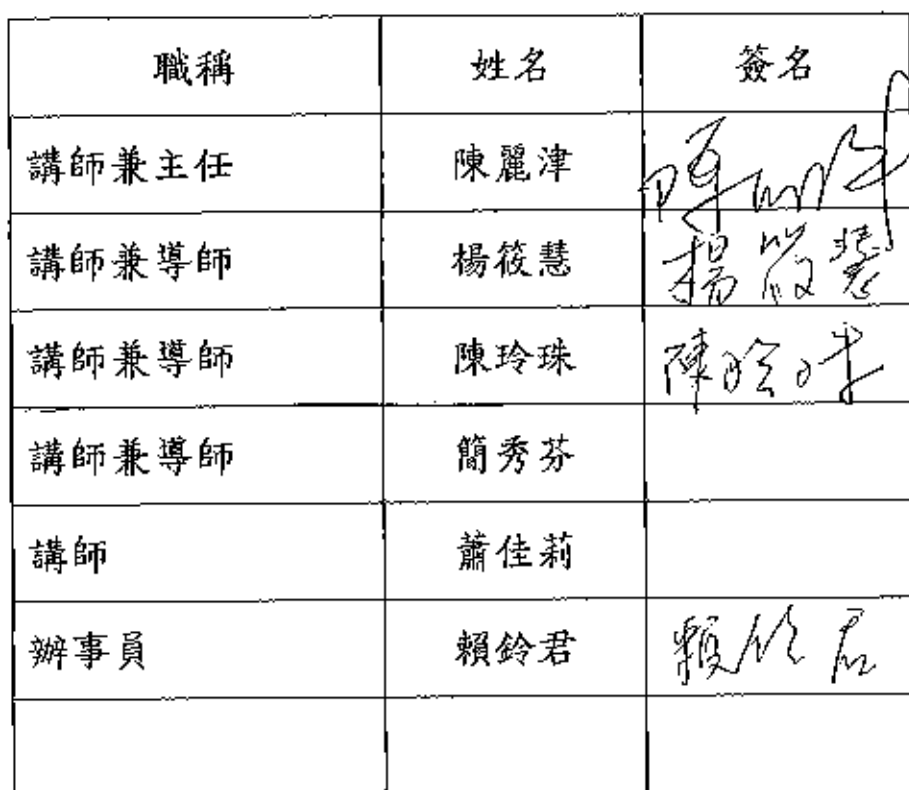 職稱 姓名 簽名
講師兼主任 陳麗津
講師兼導師 楊筱慧 楊筱慧
講師兼導師 陳玲珠 陳玲珠
講師兼導師 簡秀芬
講師 蕭佳莉
辦事員 賴鈴君 賴鈴君